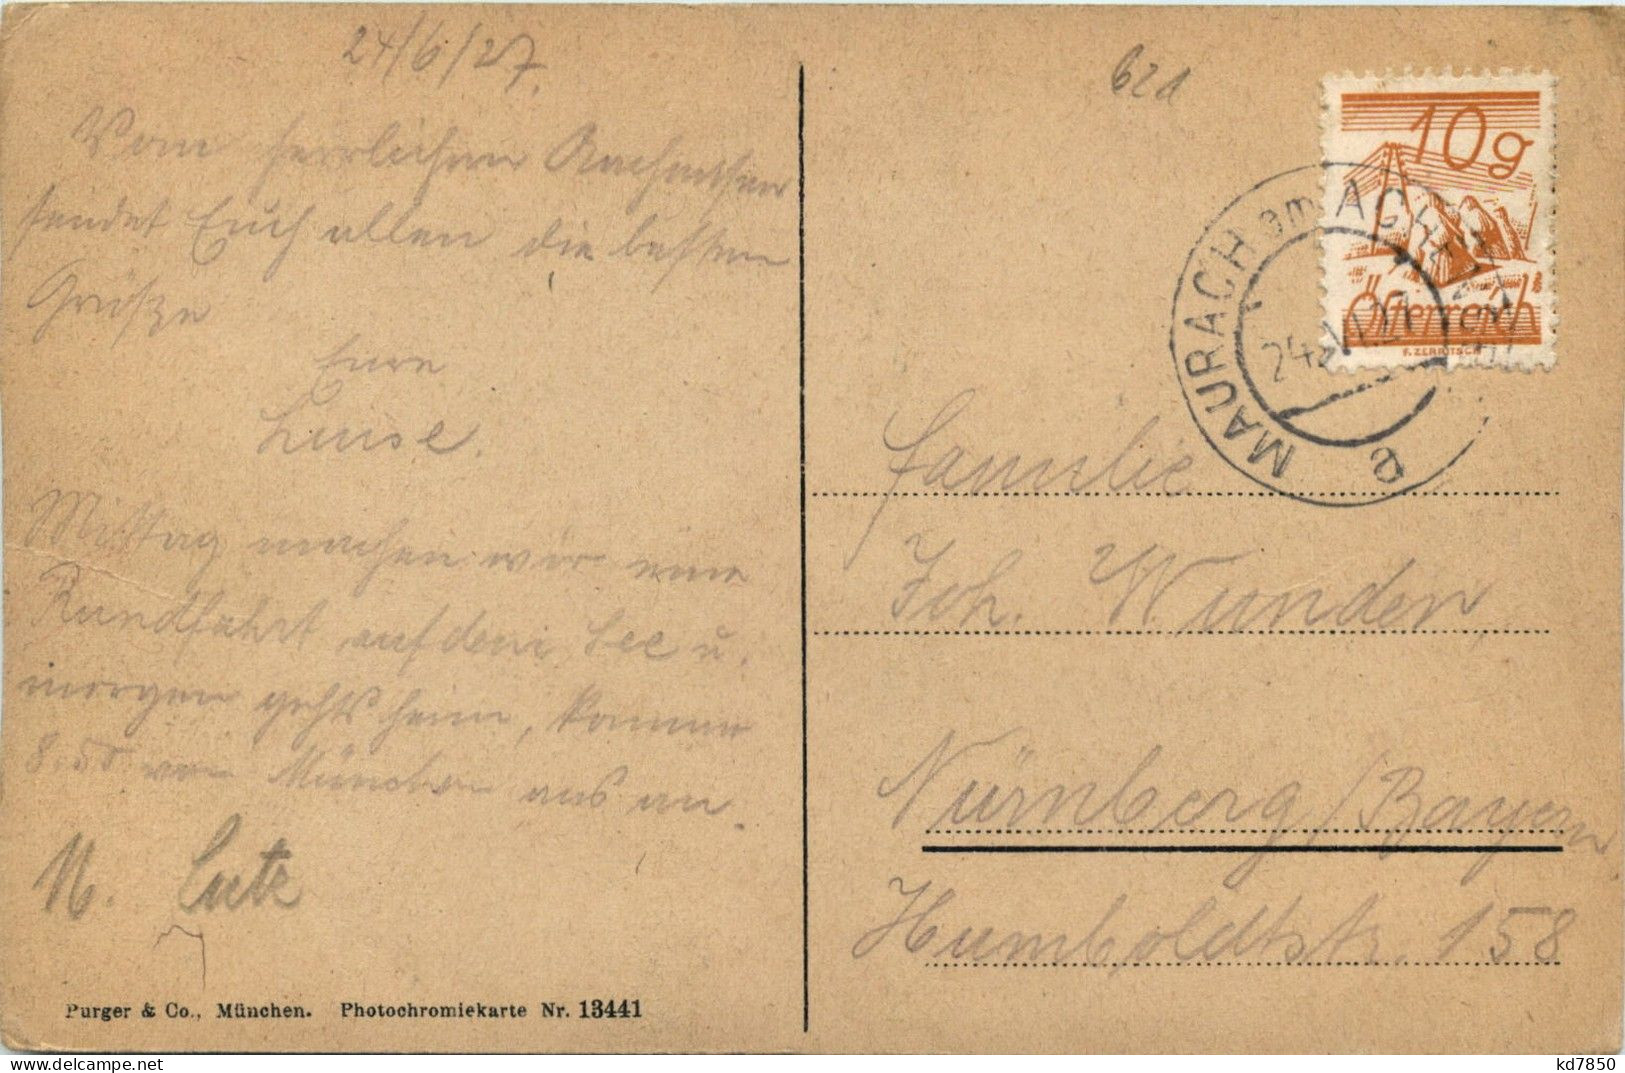 24/6/27.
Vom herrlichen Aachensee
sendet Euch allen die besten
Grüße
Eure
Luise.
Mittag machen wir eine
Rundfahrt auf dem See u.
morgen gehts heim, kommen
8.50 von München aus an.
M. Lutz
Purger & Co., München. Photochromiekarte Nr. 13441
621
10g
Österreich
F. ZERRITSCH
MAURACH am ACHENSEE
24. VI. 27
Familie
Joh. Wunder,
Nürnberg/Bayern
Humboldtstr. 158
kd7850